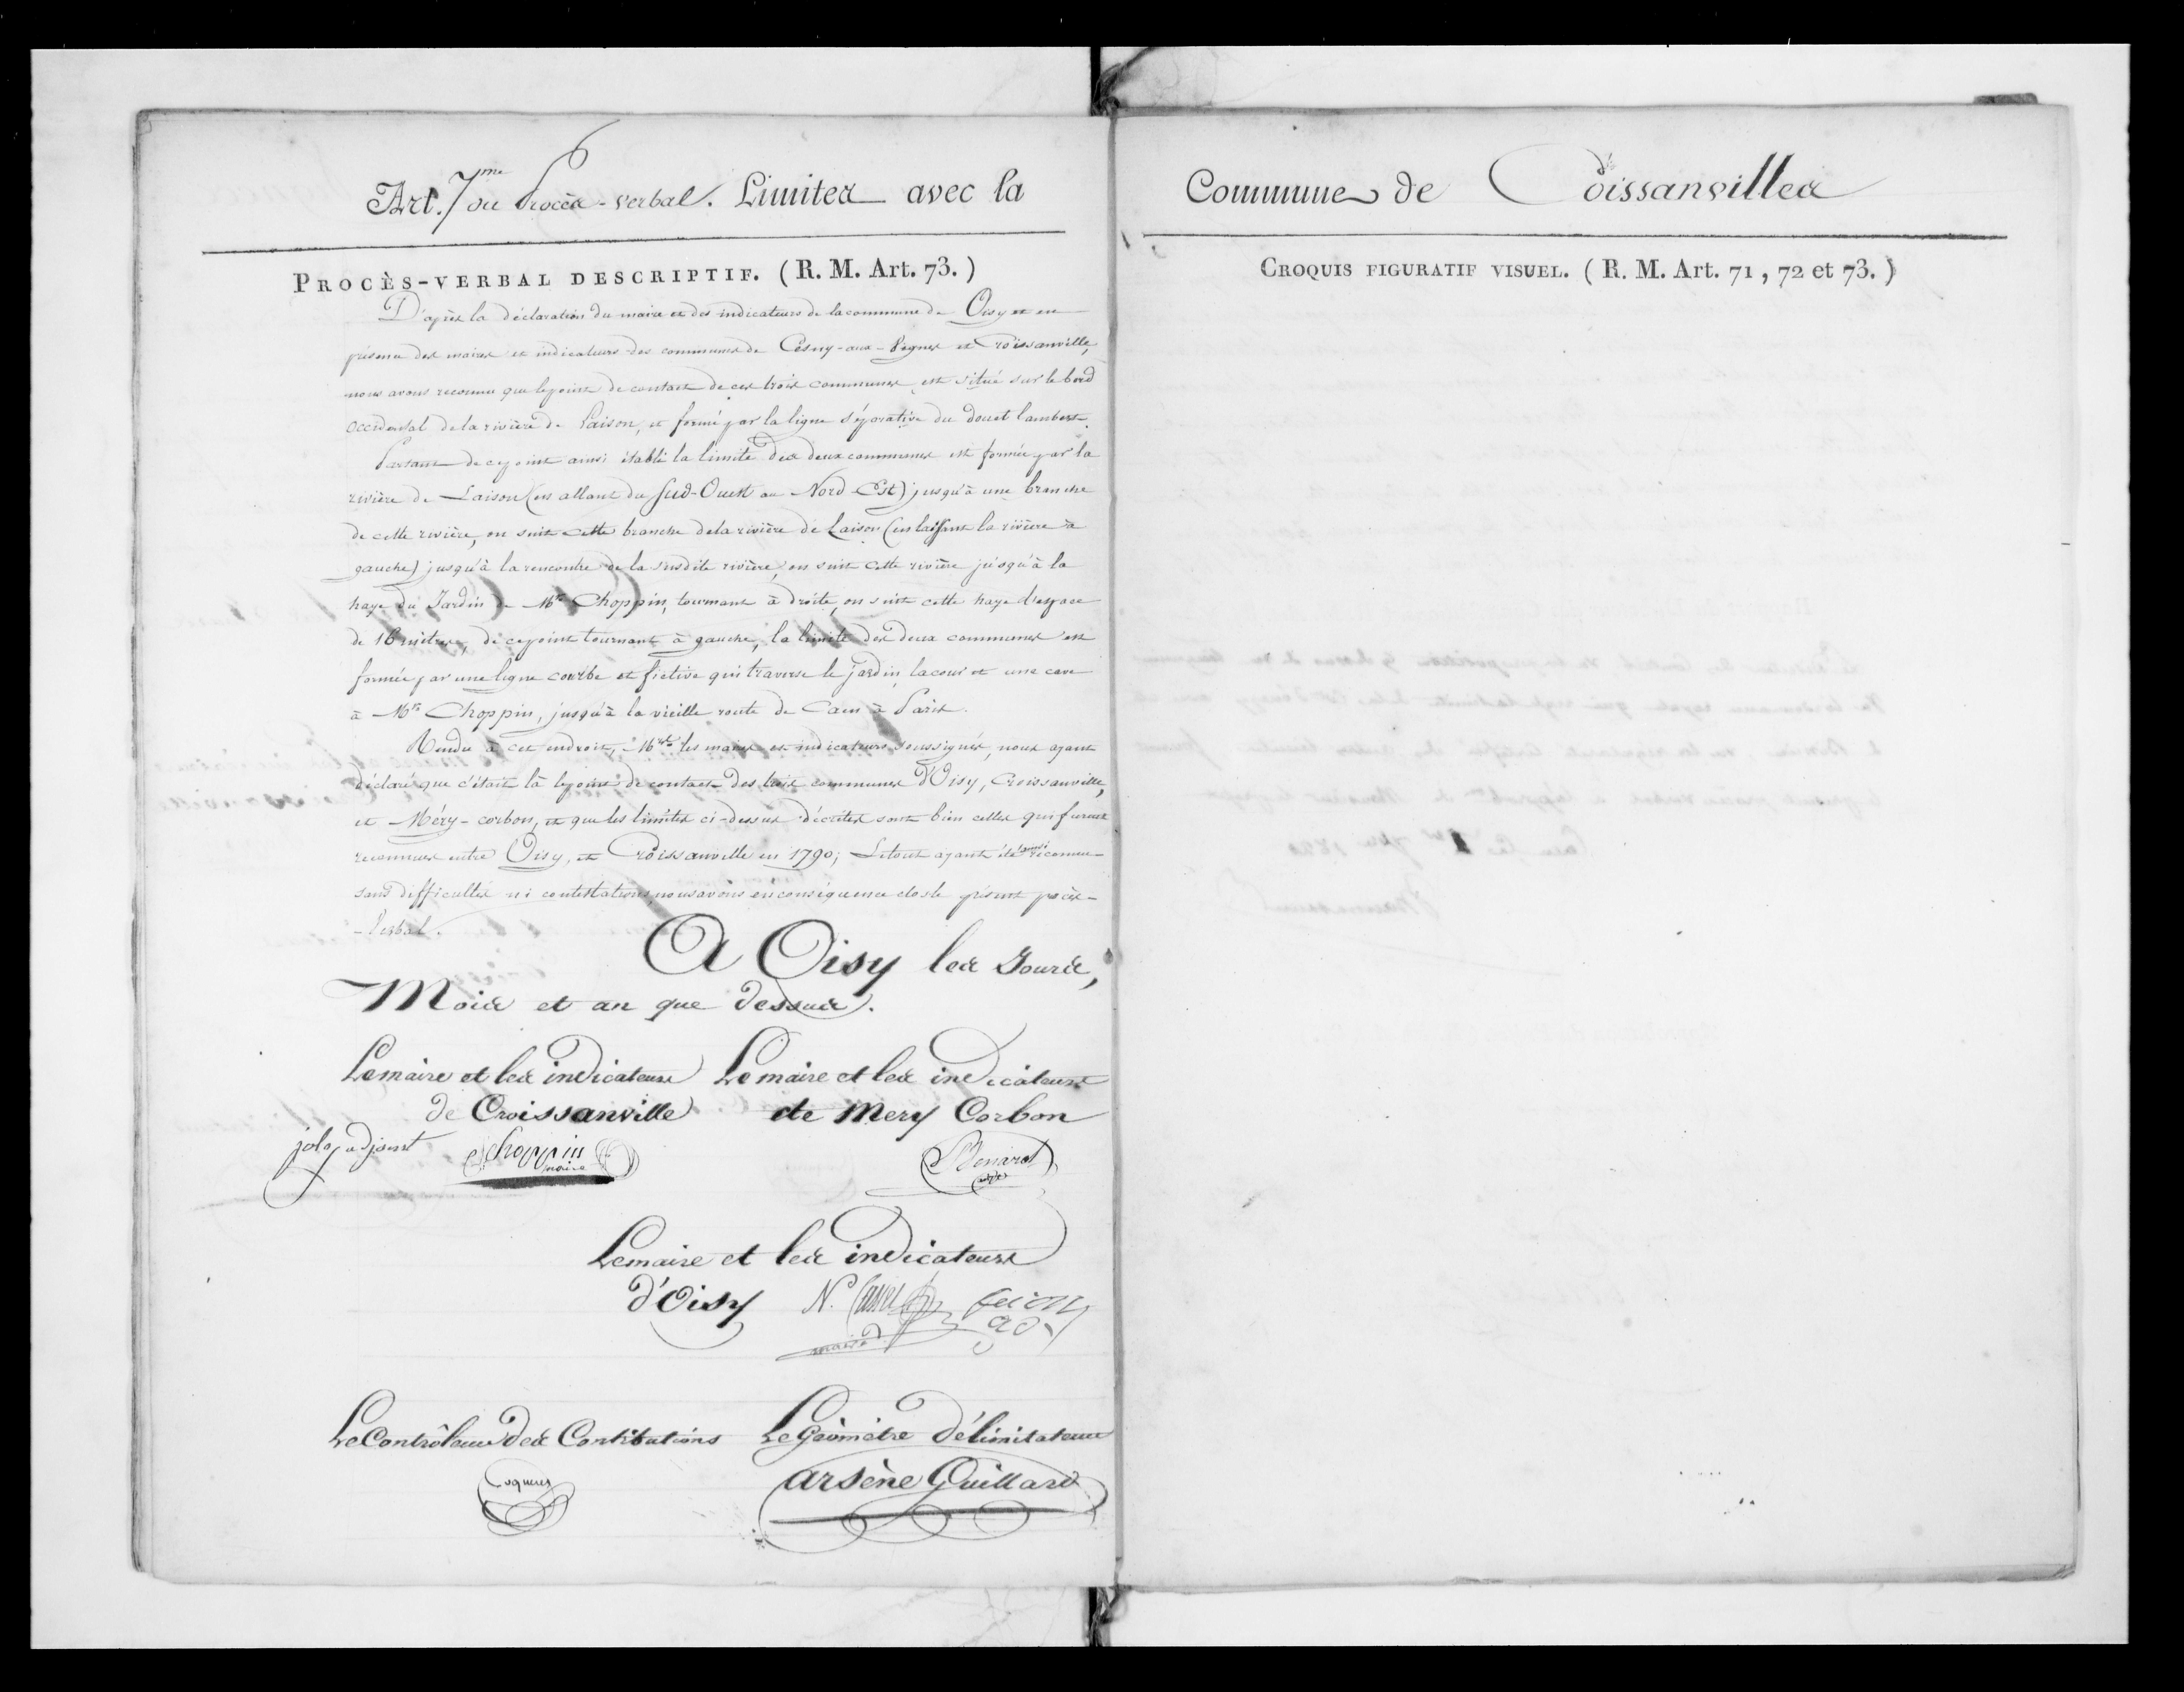 Art. 7me du Procès-verbal. Limites avec la
PROCÈS-VERBAL DESCRIPTIF. (R. M. Art. 73.)
D'après la déclaration du maire et des indicateurs de la commune de Oisy et en
présence des maires et indicateurs des communes de Cesny-aux-Vignes et Croissanville,
nous avons reconnu que le point de contact de ces trois communes est situé sur le bord
occidental de la rivière de Laison, et formé par la ligne séparative du douet lambert.
Partant de ce point ainsi établi la limite des deux communes est formée par la
rivière de Laison (en allant du Sud-Ouest au Nord-Est) jusqu'à une branche
de cette rivière, on suit cette branche de la rivière de Laison (en laissant la rivière à
gauche) jusqu'à la rencontre de la susdite rivière, on suit cette rivière jusqu'à la
haye du Jardin de Mr Choppin, tournant à droite, on suit cette haye l'espace
de 16 mètres, de ce point tournant à gauche, la limite des deux communes est
formée par une ligne courbe et fictive qui traverse le jardin, la cour et une cave
à Mr Choppin, jusqu'à la vieille route de Caen à Paris.
Rendu à cet endroit, Mrs les maires et indicateurs soussignés, nous ayant
déclaré que c'était là le point de contact des trois communes d'Oisy, Croissanville,
et Méry-corbon, et que les limites ci-dessus décrites sont bien celles qui furent
reconnues entre Oisy, et Croissanville en 1790; Le tout ayant été ainsi reconnu
sans difficultés ni contestations, nous avons en conséquence clos le présent procès-
-Verbal.
A Oisy les Jours,
Mois et an que dessus.
Le maire et les indicateurs Le maire et les indicateurs
de Croissanville de Mery Corbon
adjoint Choppin maire
Le maire et les indicateurs
d'Oisy N.
maire
Le Contrôleur des Contributions Le Géomètre Délimitateur
Arsène Guillard
Commune de Croissanville
CROQUIS FIGURATIF VISUEL. (R. M. Art. 71, 72 et 73.)